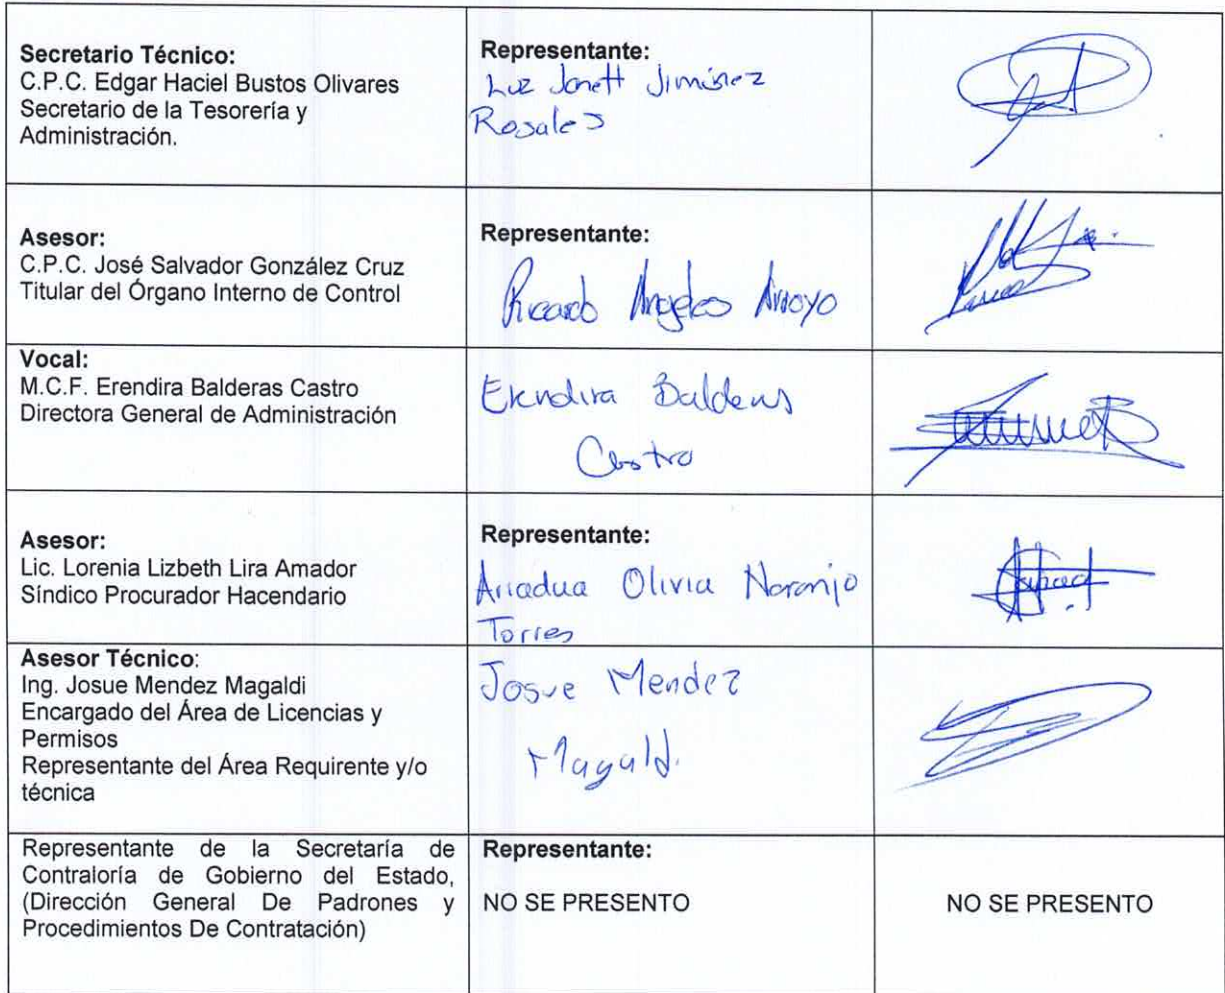 Secretario Técnico:
C.P.C. Edgar Haciel Bustos Olivares
Secretario de la Tesorería y
Administración.
Representante:
Luz Janett Jiménez
Rosales
Asesor:
C.P.C. José Salvador González Cruz
Titular del Órgano Interno de Control
Representante:
Ricardo Angeles Arroyo
Vocal:
M.C.F. Erendira Balderas Castro
Directora General de Administración
Erendira Balderas
Castro
Asesor:
Lic. Lorenia Lizbeth Lira Amador
Síndico Procurador Hacendario
Representante:
Ariadna Olivia Naranjo
Torres
Asesor Técnico:
Ing. Josue Mendez Magaldi
Encargado del Área de Licencias y
Permisos
Representante del Área Requirente y/o
técnica
Josue Mendez
Magaldi
Representante de la Secretaría de
Contraloría de Gobierno del Estado,
(Dirección General De Padrones y
Procedimientos De Contratación)
Representante:
NO SE PRESENTO
NO SE PRESENTO